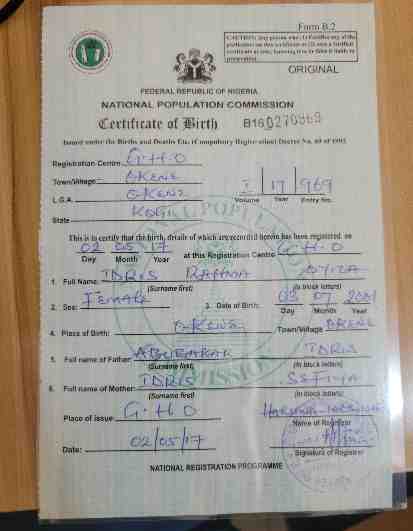 Form B.2
CAUTION: Any person who (1) Falsifies any of the particulars on this certificate or (2) uses a falsified certificate as true, knowing it to be false is liable to prosecution.
ORIGINAL
FEDERAL REPUBLIC OF NIGERIA
NATIONAL POPULATION COMMISSION
Certificate of Birth
Issued under the Births and Deaths Etc. (Compulsory Registration) Decree No. 69 of 1992
Registration Centre G.H.O
Town/Village OKENE
L.G.A. OKENE
I 17 969
Volume Year Entry No.
State KOGI
This is to certify that the birth, details of which are recorded herein has been registered on
02 05 17 at this Registration Centre G.H.O
Day Month Year
1. Full Name: IDRIS RAHMA OYIZA
(Surname first) (In block letters)
2. Sex: FEMALE 3. Date of Birth: 03 07 2001
Day Month Year
4. Place of Birth: OKENE Town/Village OKENE
5. Full name of Father: IDRIS
(Surname first) (In block letters)
6. Full name of Mother: IDRIS
(Surname first) (In block letters)
Place of issue: G.H.O
Name of Registrar
Date: 02/05/17
Signature of Registrar
NATIONAL REGISTRATION PROGRAMME